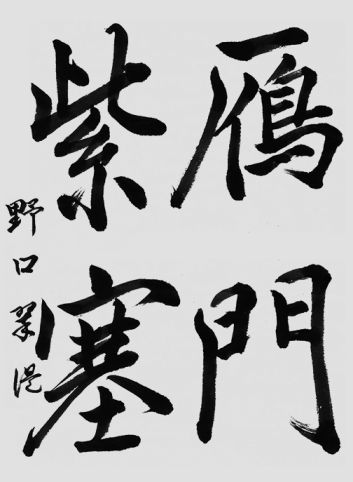 鴈門
紫塞
野口翠堤